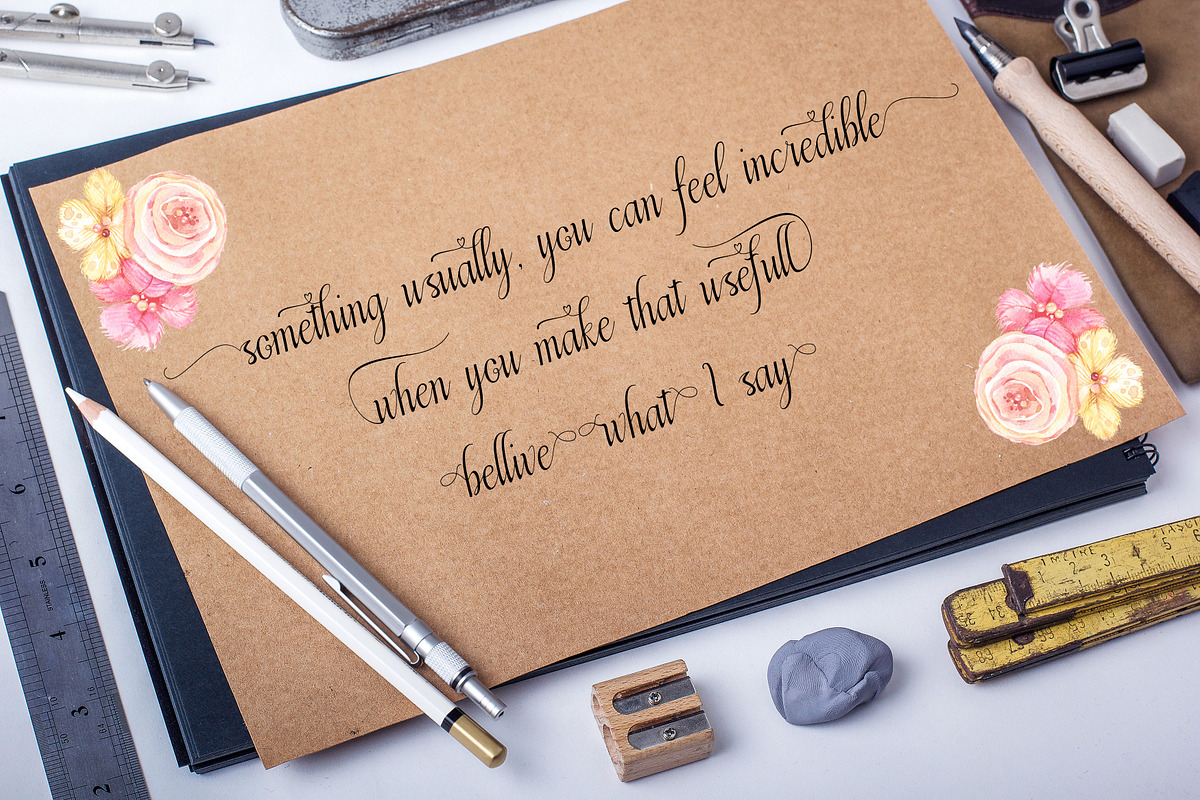 something usually, you can feel incredible
when you make that usefull
bellive what I say
6
5
STAINLESS
4
3
2
1 2 3 4 5 6